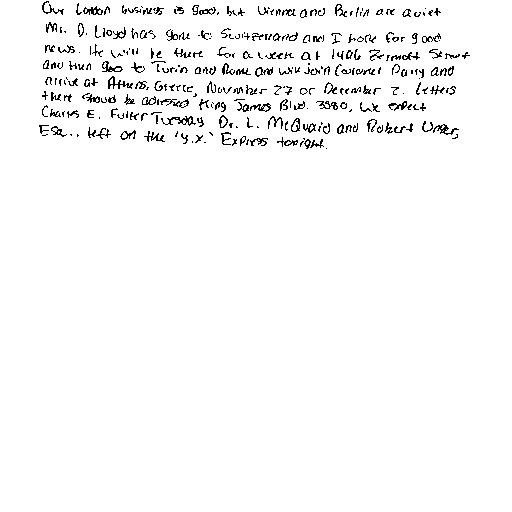 Our London business is good, but Vienna and Berlin are quiet
Mr. D. Lloyd has gone to Switzerland and I hope for good
news. He will be there for a week at 1496 Zermott Street
and then goes to Turin and Rome and will join Colonel Parry and
arrive at Athens, Greece, November 27 or December 2. Letters
there should be adressed King James Blvd. 3580. We expect
Charles E. Fuller Tuesday. Dr. L. McQuaid and Robert Unger,
Esq.. left on the "Y.X." Express tonight.